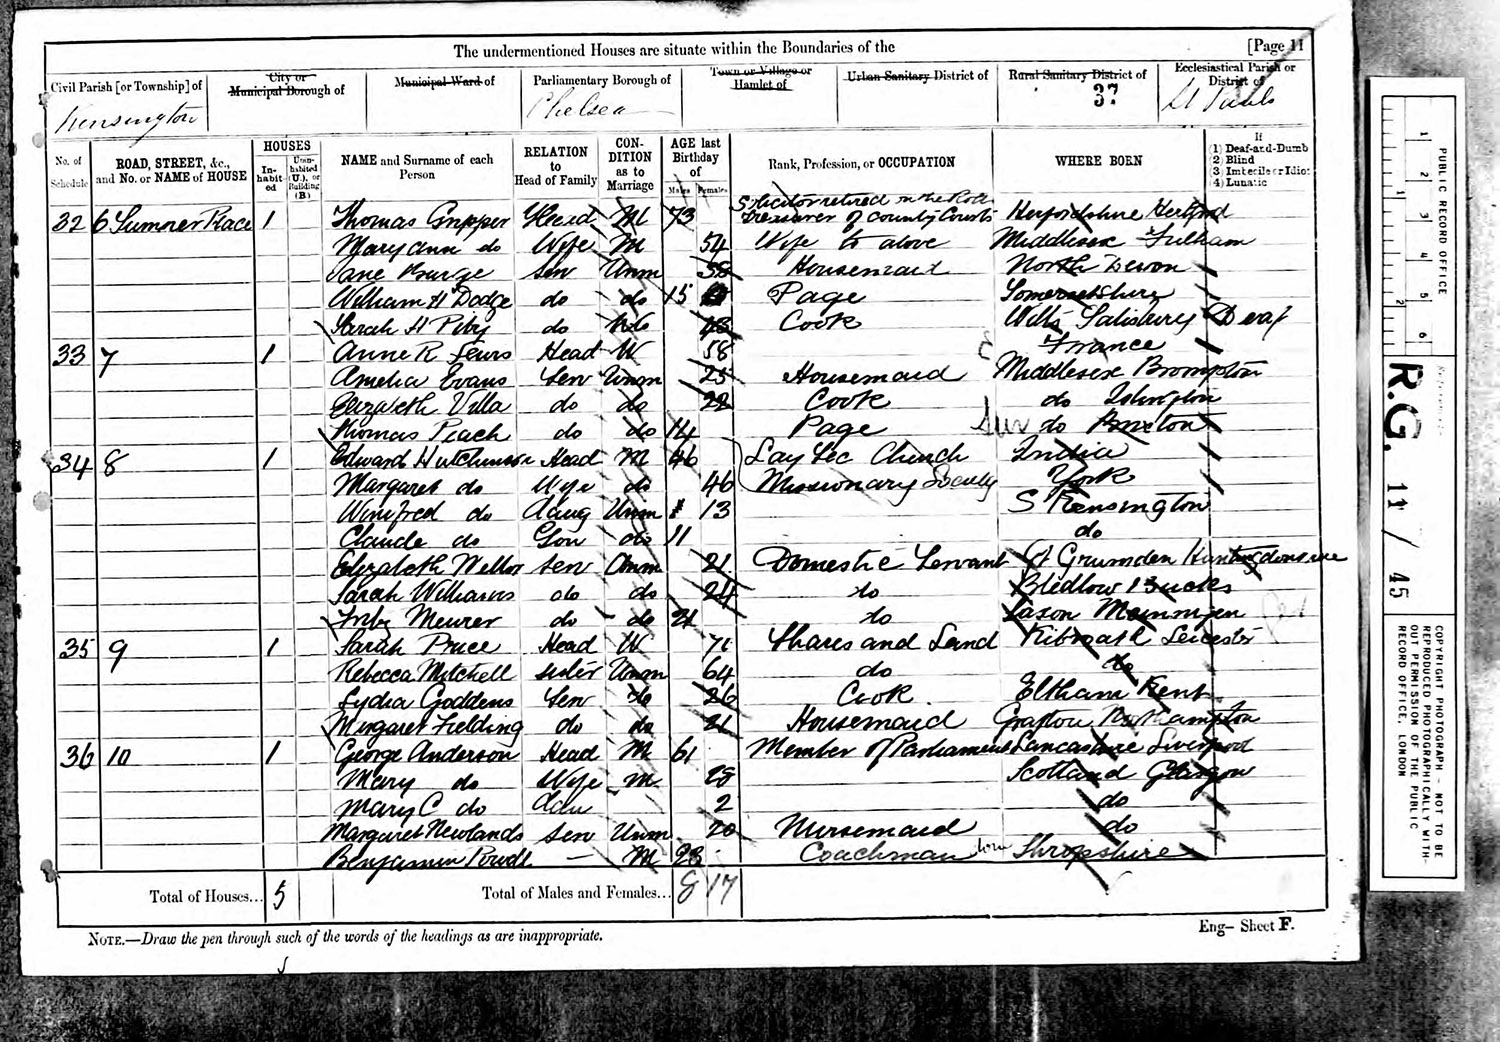 The undermentioned Houses are situate within the Boundaries of the [Page 11
Civil Parish [or Township] of City or Municipal Borough of Municipal Ward of Parliamentary Borough of Town or Village or Hamlet of Urban Sanitary District of Rural Sanitary District of Ecclesiastical Parish or District of
Kensington Chelsea 37 St Pauls
No. of Schedule ROAD, STREET, &c., and No. or NAME of HOUSE HOUSES In-habit-ed Unin-habited (U.), or Building (B) NAME and Surname of each Person RELATION to Head of Family CON-DITION as to Marriage AGE last Birthday of Males Females Rank, Profession, or OCCUPATION WHERE BORN If (1) Deaf-and-Dumb (2) Blind (3) Imbecile or Idiot (4) Lunatic
Solicitor retired on the Roll
32 6 Sumner Place 1 Thomas Gripper Head M 73 Treasurer of County Courts Herfordshire Hertford
Mary Ann do Wife M 54 Wife to above Middlesex Fulham
Jane Burge Serv Unm 38 Housemaid North Devon
William H Dodge do do 15 Page Somersetshire
Sarah H Piby do do 43 Cook Wilts Salisbury Deaf
33 7 1 Anne R Head W 58 France
Amelia Evans Serv Unm 25 Housemaid Middlesex Brompton
Elizabeth Villa do do 22 Cook do Islington
Thomas Peach do do 14 Page Sur do Brixton
34 8 1 Edward Hutchinson Head M 46 Lay Sec Church India
Margaret do Wife do 46 Missionary Society York
Winifred do Daug Unm 13 S Kensington
Claude do Son do 11 do
Elizabeth Weller Serv Unm 21 Domestic Servant Gt Huntingdonshire
Sarah Williams do do 24 do Bledlow Bucks
Meurer do do 21 do Saxon Meiningen
35 9 1 Sarah Price Head W 71 Shares and Land Kibworth Leicester
Rebecca Mitchell sister Unm 64 do do
Lydia Goddens Serv do 26 Cook Eltham Kent
Margaret Fielding do do 21 Housemaid Grafton Northampton
36 10 1 George Anderson Head M 61 Member of Parliament Lancashire Liverpool
Mary do Wife M 28 Scotland Glasgow
Mary C do dau 2 do
Margaret Newlands Serv Unm 20 Nursemaid do
Benjamin Powell — M 28 Coachman dom Shropshire
Total of Houses... 5 Total of Males and Females... 8 17
NOTE.—Draw the pen through such of the words of the headings as are inappropriate. Eng— Sheet F.
PUBLIC RECORD OFFICE
1 2 3 4 5 6
1 2
Reference:-
R.G. 11 / 45
COPYRIGHT PHOTOGRAPH – NOT TO BE REPRODUCED PHOTOGRAPHICALLY WITH-OUT PERMISSION OF THE PUBLIC RECORD OFFICE, LONDON